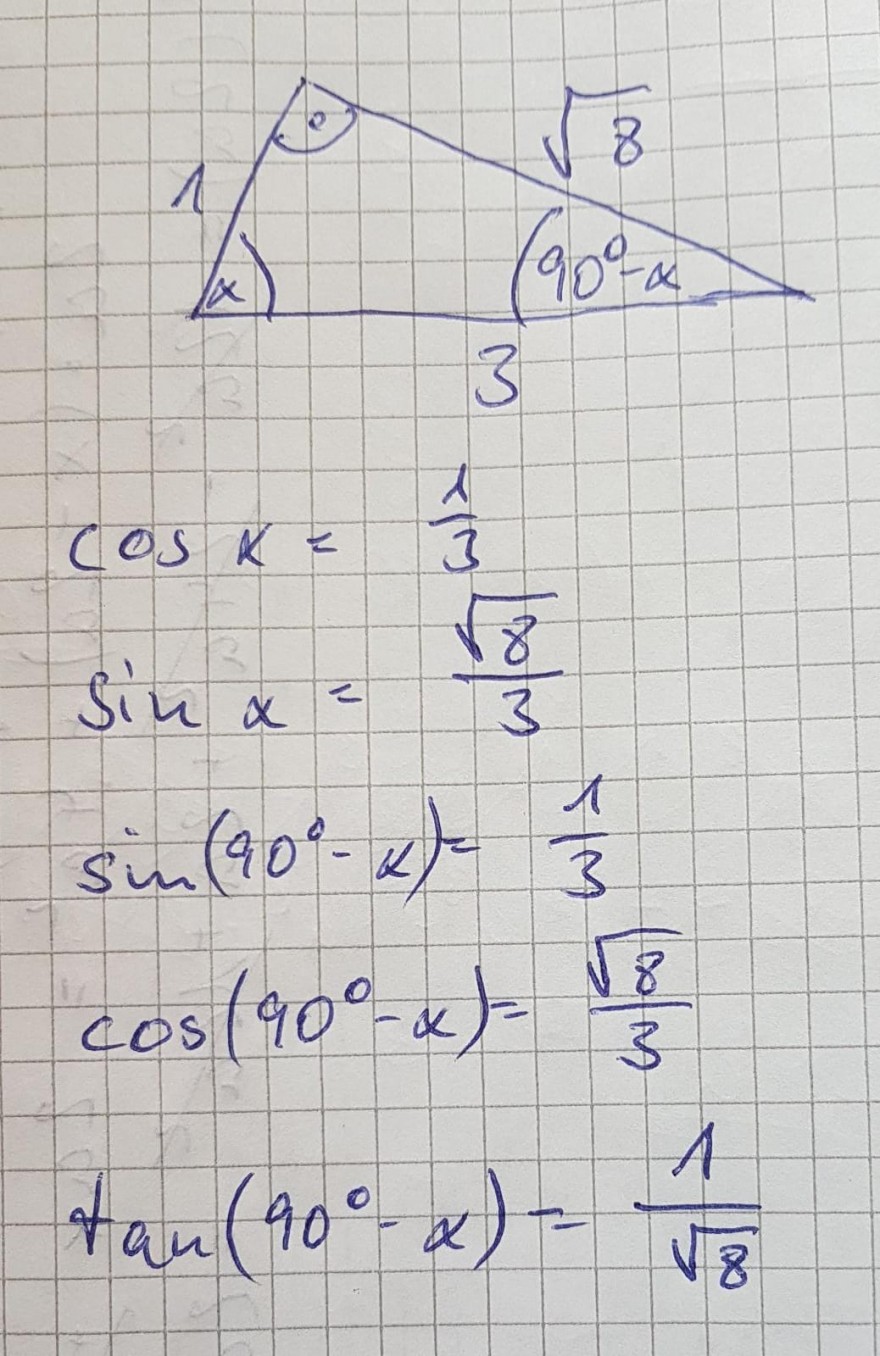 √8
1
α
90°-α
3
cos α = 1/3
sin α = √8/3
sin(90°-α)= 1/3
cos(90°-α)= √8/3
tan(90°-α)= 1/√8